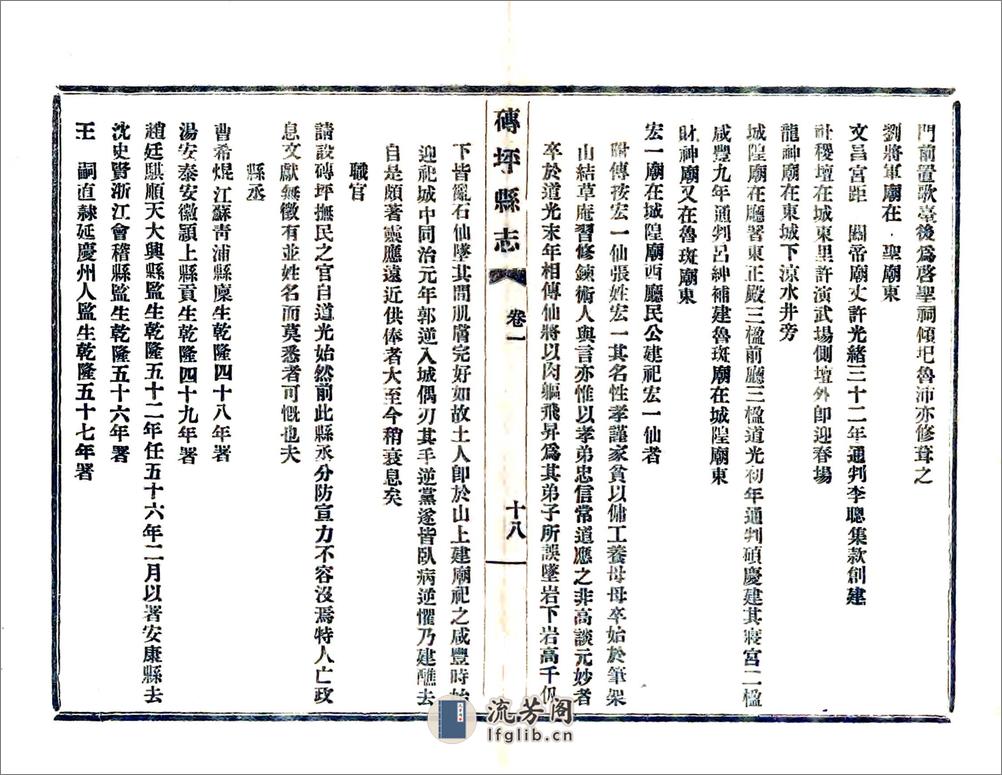 門前置歌臺後為啓聖祠傾圯魯沛亦修葺之
劉將軍廟在 聖廟東
文昌宮距 關帝廟丈許光緒三十二年通判李聰集款創建
社稷壇在城東里許演武場側壇外卽迎春場
龍神廟在東城下涼水井旁
城隍廟在廳署東正殿三楹前廳三楹道光初年通判碩慶建其寢宮二楹
咸豐九年通判呂紳補建魯斑廟在城隍廟東
財神廟又在魯斑廟東
宏一廟在城隍廟西廳民公建祀宏一仙者
附傳孩宏一仙張姓宏一其名性孝謹家貧以傭工養母母卒始於筆架
山結草庵習修鍊術人與言亦惟以孝弟忠信常道應之非高談元妙者
卒於道光末年相傳仙將以肉軀飛昇為其弟子所誤墜岩下岩高千仭
磚坪縣志
卷一
十八
下皆亂石仙墜其間肌膚完好如故土人卽於山上建廟祀之咸豐時始
迎祀城中同治元年郭逆入城偶刃其手逆黨遂皆臥病逆懼乃建醮去
自是頗著靈應遠近供俸者大至今稍衰息矣
職官
請設磚坪撫民之官自道光始然前此縣丞分防宣力不容沒焉特人亡政
息文獻無徵有並姓名而莫悉者可慨也夫
縣丞
曹希焜江蘇靑浦縣廩生乾隆四十八年署
湯安泰安徽潁上縣貢生乾隆四十九年署
趙廷騏順天大興縣監生乾隆五十二年任五十六年二月以署安康縣去
沈史賢浙江會稽縣監生乾隆五十六年署
王 嗣直隸延慶州人監生乾隆五十七年署
流芳阁
lfglib.cn